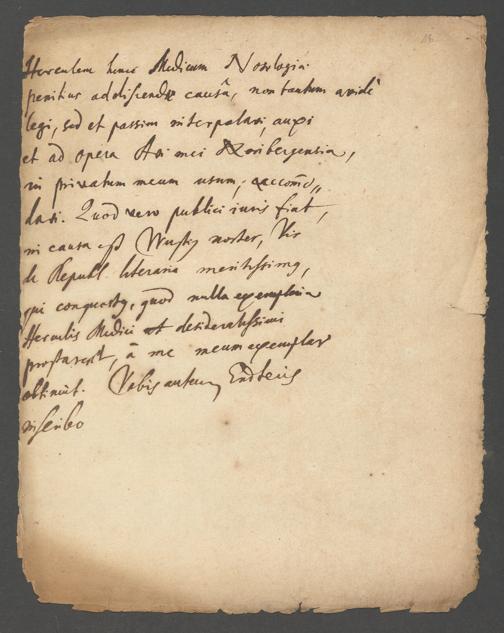 Herculem hunc Medicum Nosologiæ
penitus addiscendæ causâ, non tantum avidè
legi, sed et passim interpolavi, auxi
et ad opera Avi mei Noribergensia,
in privatum meum usum, accom̄o„
davi. Quod vero publici iuris fiat,
in causa est noster, Vir
de Republ. literaria meritissimq,
qui conquestq, quod nulla exemplaria
Herculis Medici et desideratissimi
prostarent, à me meum exemplar
obtinuit. Vobis autem, Endteris
inscribo